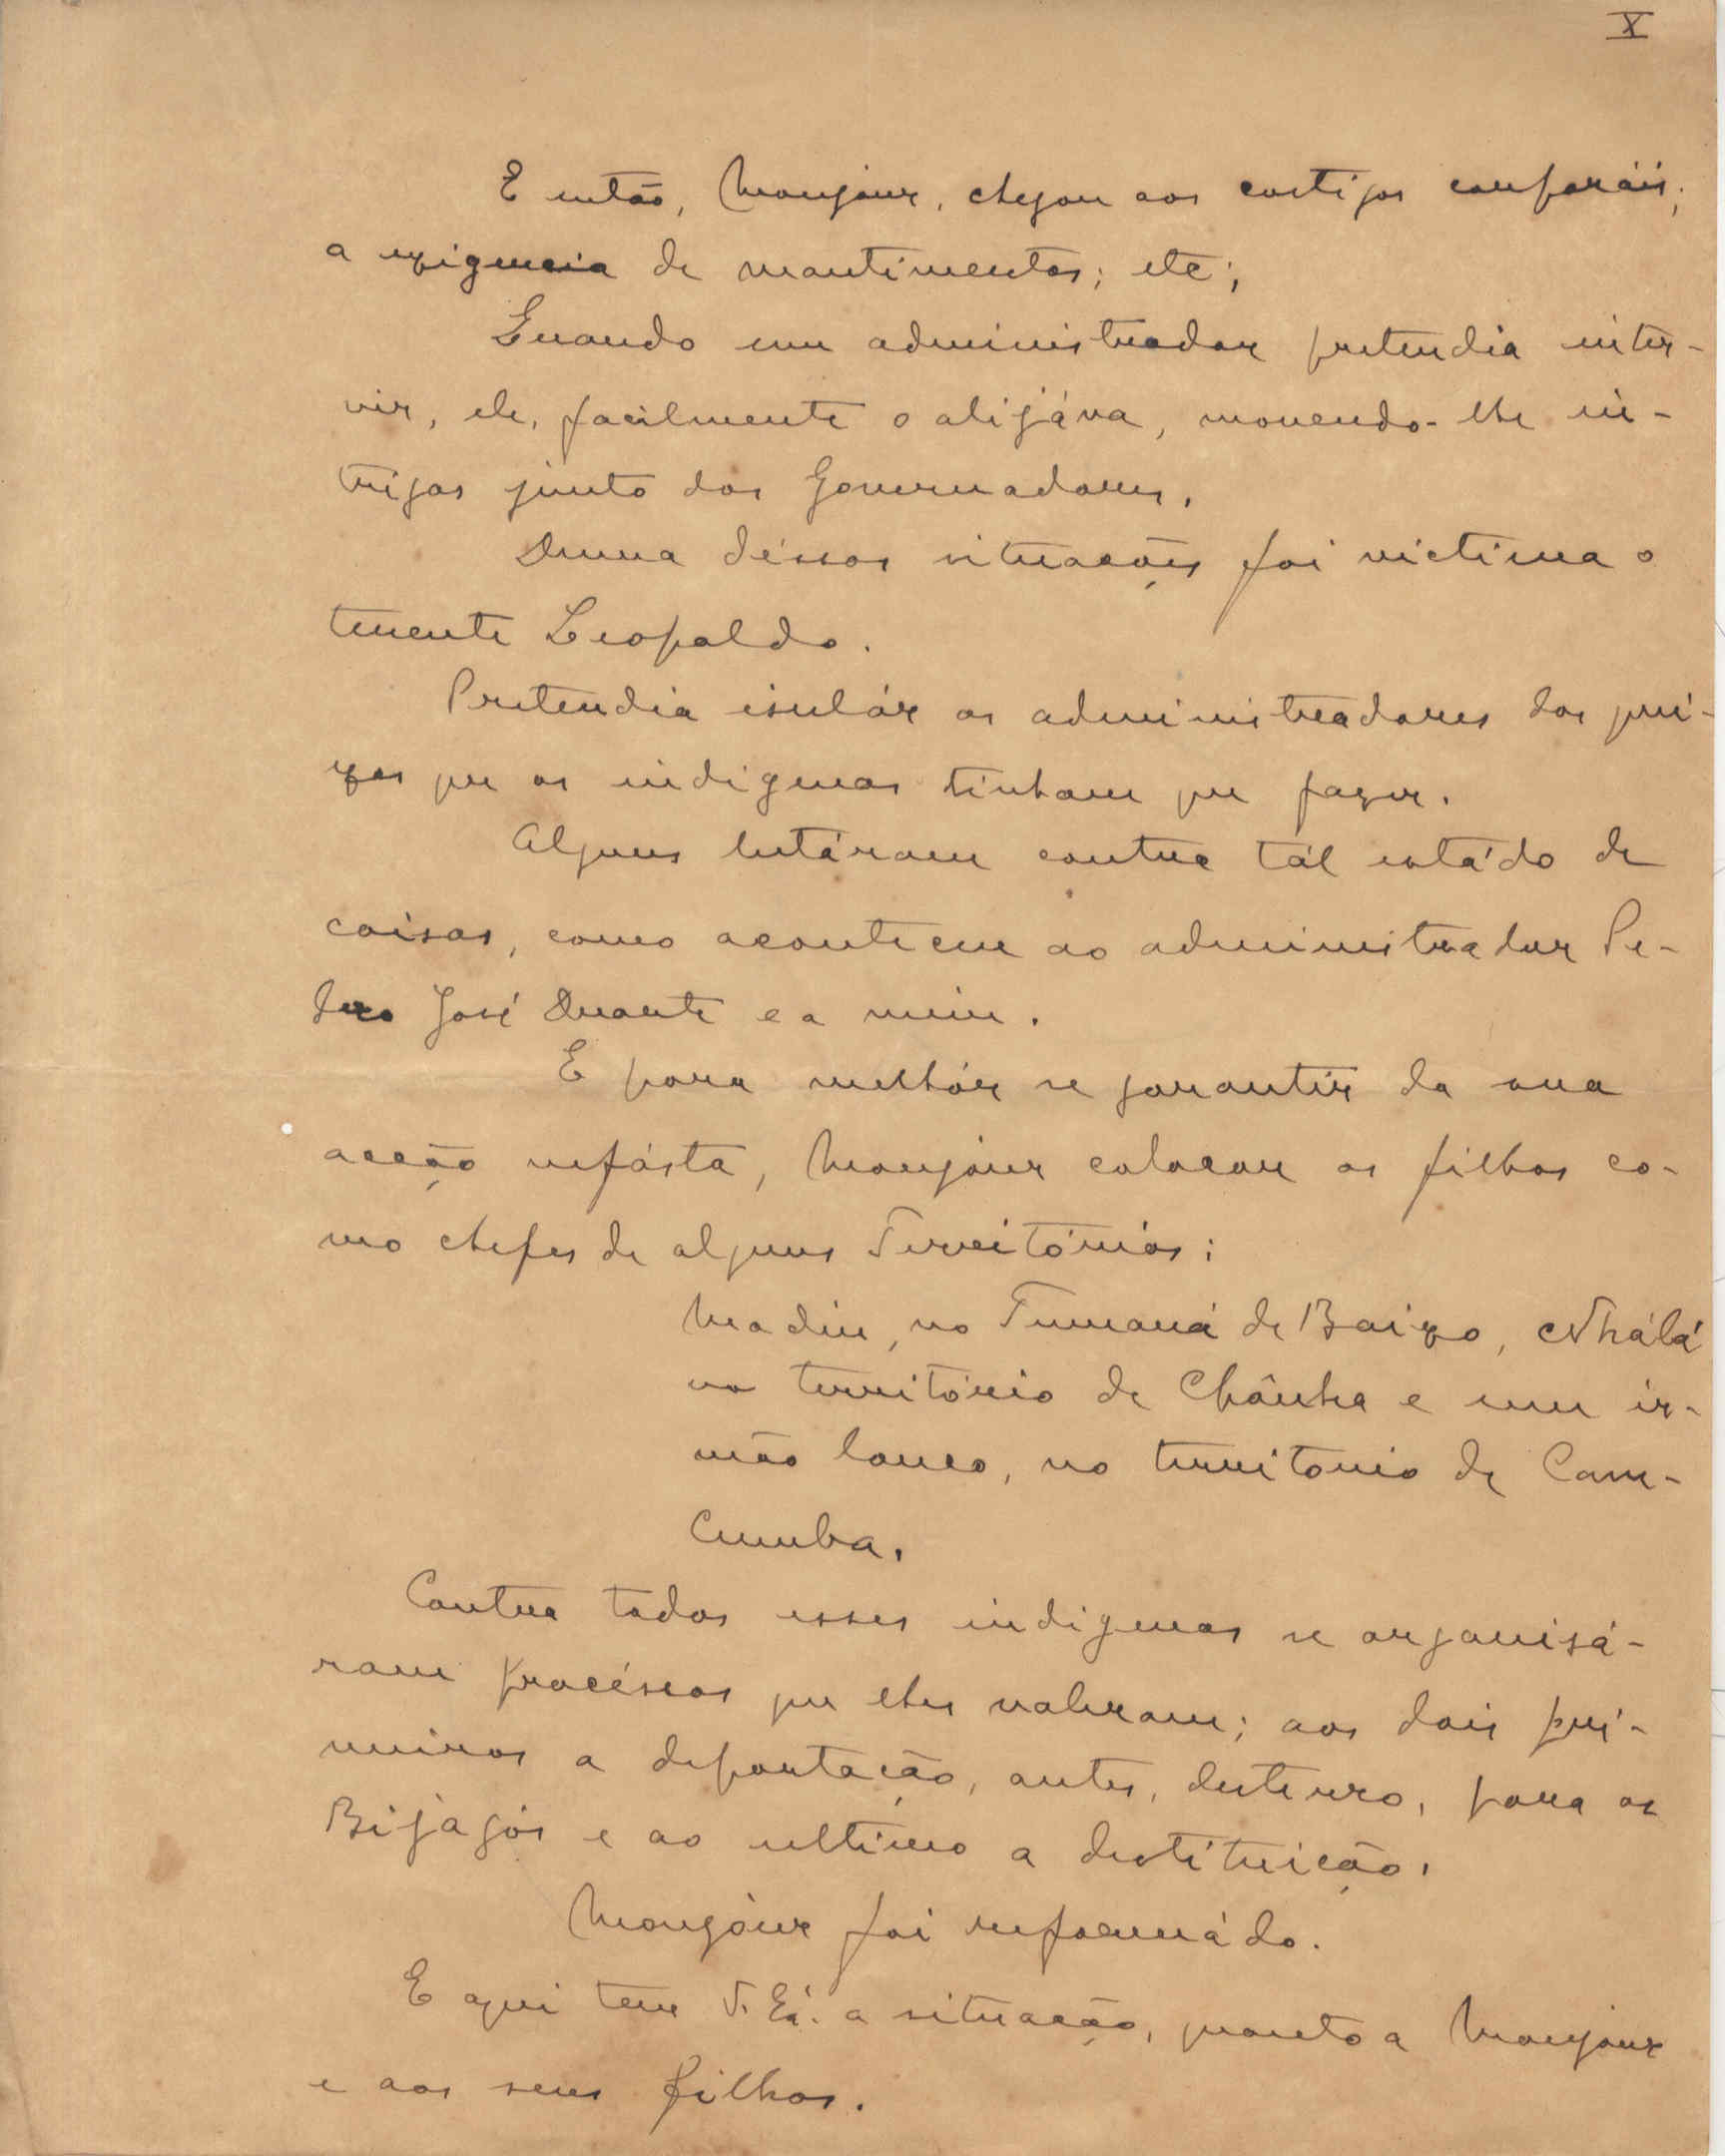 X
E então, Monjour, chegou aos castigos corporáis;
a exigencia de mantimentos; etc;
Quando um administrador pretendia inter-
vir, ele, facilmente o alijáva, movendo-lhe in-
trigas junto dos Governadores.
Duma déssas situações foi victima o
tenente Leopoldo.
Pretendia isulár os administradores das quei-
xas que os indigenas tinham que fazer.
Alguns lutáram contra tál estádo de
coisas, como aconteceu ao administrador Pe-
dro José Duarte e a mim.
E para melhór se garantir da sua
acção nefásta, Monjour colocou os filhos co-
mo chefes de alguns Territórios:
Madiu, no Tumaná de Baixo, Nhálá
no território de Chânha e um ir-
mão louco, no territorio de Cam-
Cumba.
Contra todos esses indigenas se organisá-
ram procéssos que lhes valeram; aos dois pri-
meiros a deportação, antes, desterro, para os
Bijagós e ao ultimo a destituição.
Monjour foi reformádo.
E aqui tem V. Exá. a situação, quanto a Monjour
e aos seus filhos.